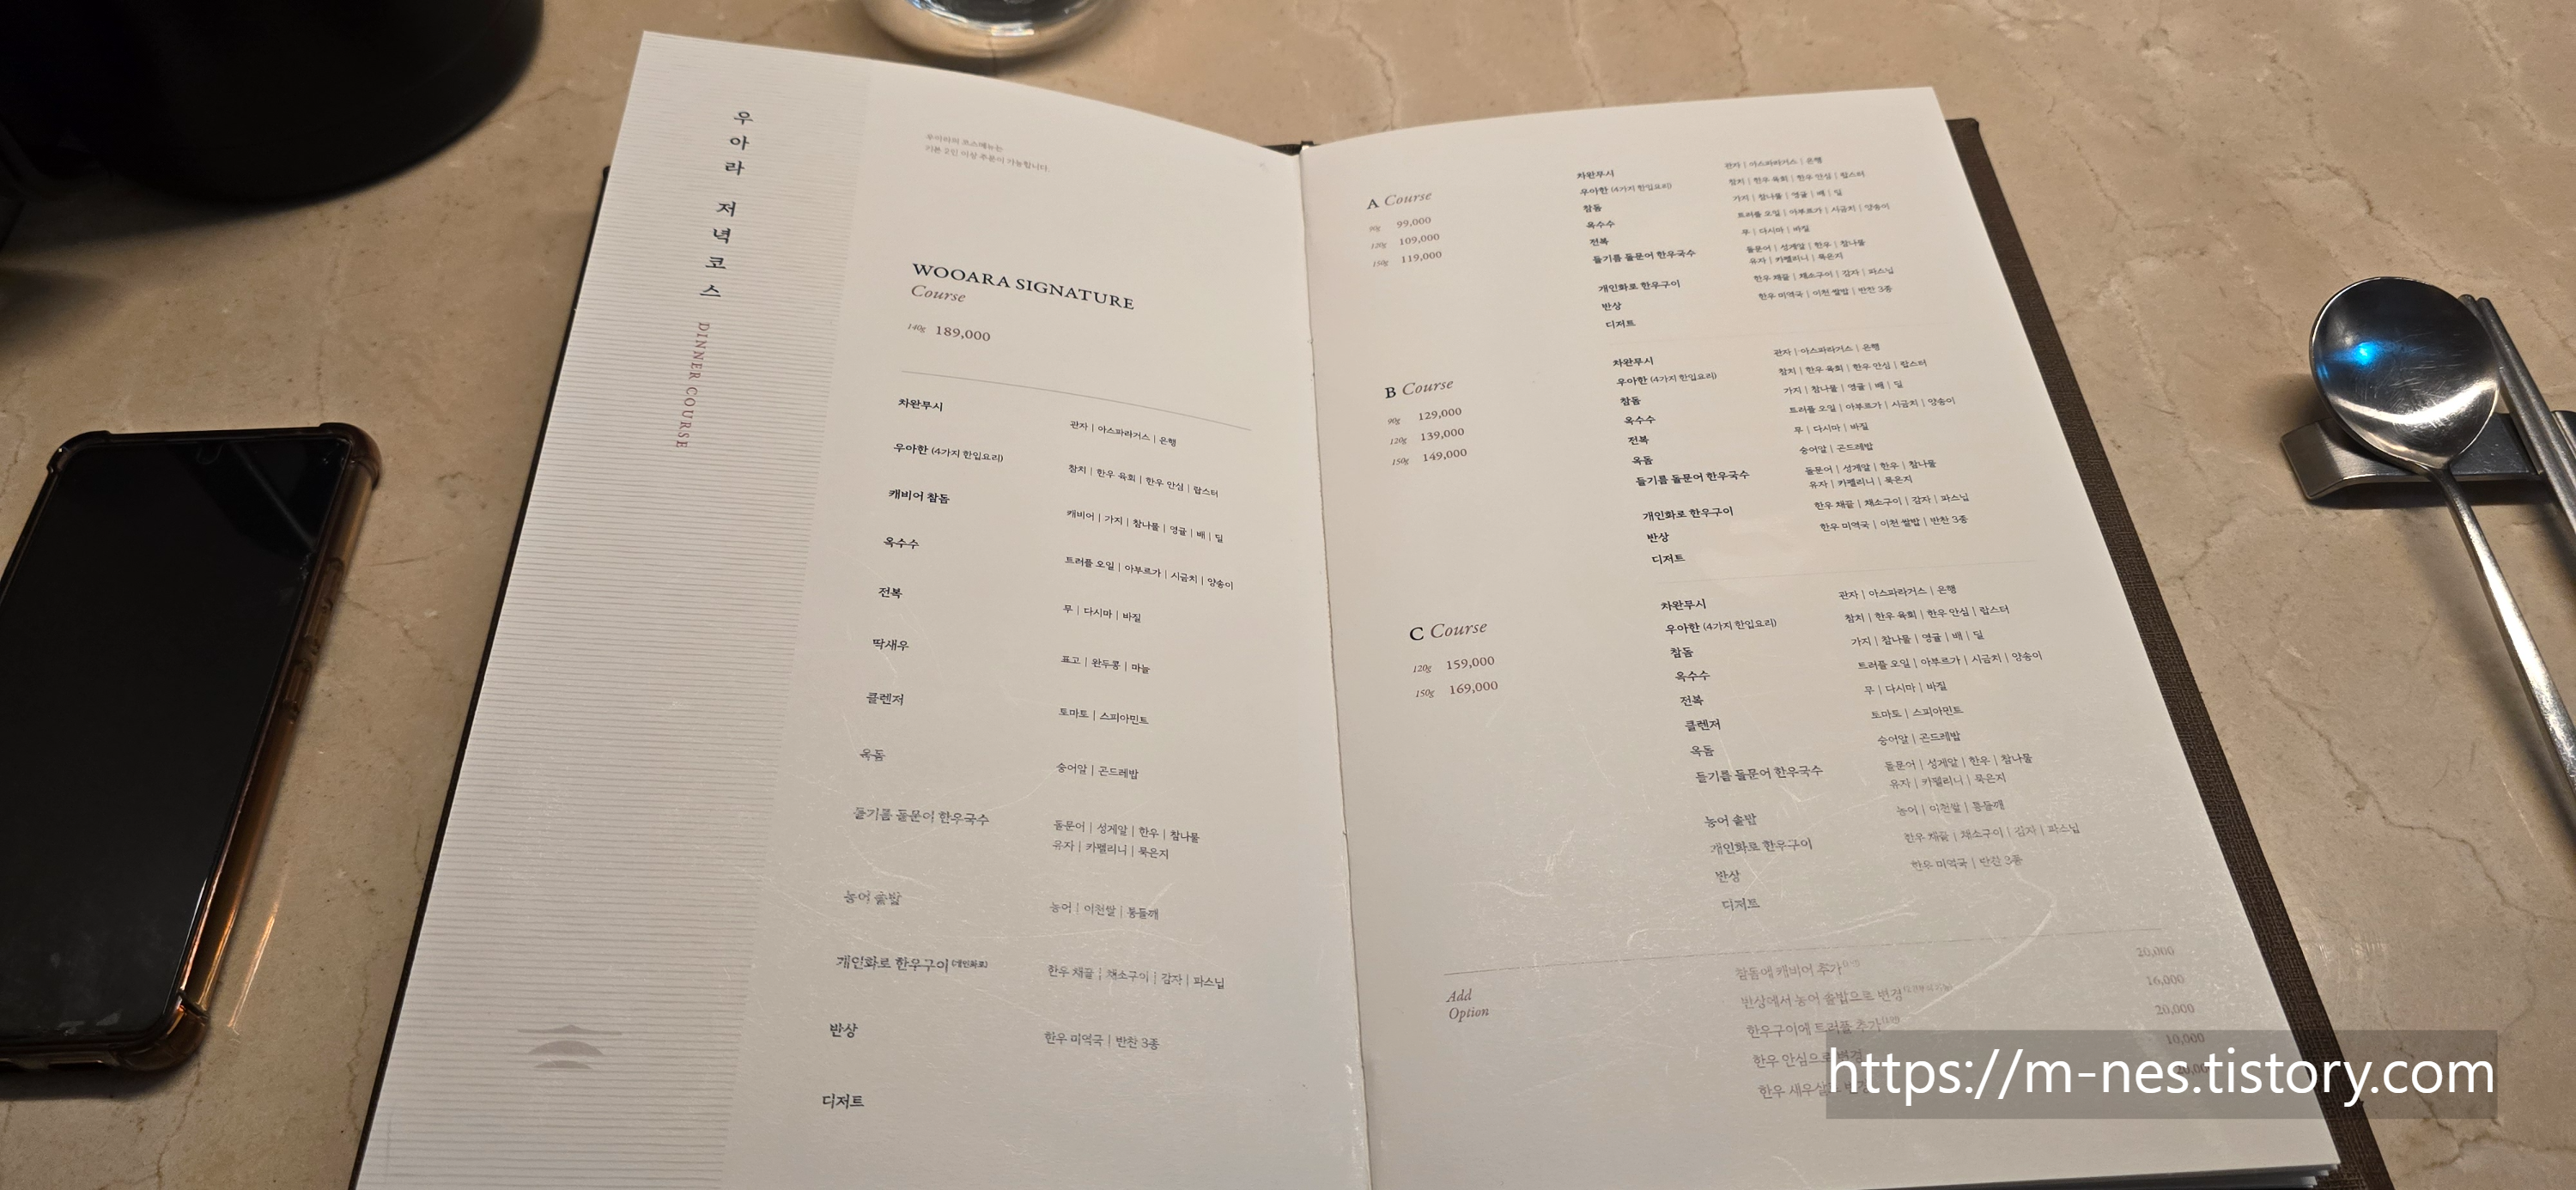 우아라 저녁코스 DINNER COURSE
우아라의 코스메뉴는
기본 2인 이상 주문이 가능합니다.
WOOARA SIGNATURE
Course
140g 189,000
차완무시 관자 | 아스파라거스 | 은행
우아한 (4가지 한입요리) 참치 | 한우 육회 | 한우 안심 | 랍스터
캐비어 참돔 캐비어 | 가지 | 참나물 | 영귤 | 배 | 딜
옥수수 트러플 오일 | 아부르가 | 시금치 | 양송이
전복 무 | 다시마 | 바질
딱새우 표고 | 완두콩 | 마늘
클렌저 토마토 | 스피아민트
옥돔 숭어알 | 곤드레밥
들기름 돌문어 한우국수 돌문어 | 성게알 | 한우 | 참나물
유자 | 카펠리니 | 묵은지
농어 솥밥 농어 | 이천쌀 | 통들깨
개인화로 한우구이 (개인화로) 한우 채끝 | 채소구이 | 감자 | 파스닙
반상 한우 미역국 | 반찬 3종
디저트
A Course
90g 99,000
120g 109,000
150g 119,000
차완무시 관자 | 아스파라거스 | 은행
우아한 (4가지 한입요리) 참치 | 한우 육회 | 한우 안심 | 랍스터
참돔 가지 | 참나물 | 영귤 | 배 | 딜
옥수수 트러플 오일 | 아부르가 | 시금치 | 양송이
전복 무 | 다시마 | 바질
들기름 돌문어 한우국수 돌문어 | 성게알 | 한우 | 참나물
유자 | 카펠리니 | 묵은지
개인화로 한우구이 한우 채끝 | 채소구이 | 감자 | 파스닙
반상 한우 미역국 | 이천 쌀밥 | 반찬 3종
디저트
B Course
90g 129,000
120g 139,000
150g 149,000
차완무시 관자 | 아스파라거스 | 은행
우아한 (4가지 한입요리) 참치 | 한우 육회 | 한우 안심 | 랍스터
참돔 가지 | 참나물 | 영귤 | 배 | 딜
옥수수 트러플 오일 | 아부르가 | 시금치 | 양송이
전복 무 | 다시마 | 바질
옥돔 숭어알 | 곤드레밥
들기름 돌문어 한우국수 돌문어 | 성게알 | 한우 | 참나물
유자 | 카펠리니 | 묵은지
개인화로 한우구이 한우 채끝 | 채소구이 | 감자 | 파스닙
반상 한우 미역국 | 이천 쌀밥 | 반찬 3종
디저트
C Course
120g 159,000
150g 169,000
차완무시 관자 | 아스파라거스 | 은행
우아한 (4가지 한입요리) 참치 | 한우 육회 | 한우 안심 | 랍스터
참돔 가지 | 참나물 | 영귤 | 배 | 딜
옥수수 트러플 오일 | 아부르가 | 시금치 | 양송이
전복 무 | 다시마 | 바질
클렌저 토마토 | 스피아민트
옥돔 숭어알 | 곤드레밥
들기름 돌문어 한우국수 돌문어 | 성게알 | 한우 | 참나물
유자 | 카펠리니 | 묵은지
농어 솥밥 농어 | 이천쌀 | 통들깨
개인화로 한우구이 한우 채끝 | 채소구이 | 감자 | 파스닙
반상 한우 미역국 | 반찬 3종
디저트
Add
Option
참돔에 캐비어 추가 20,000
반상에서 농어 솥밥으로 변경 16,000
한우구이에 트러플 추가 20,000
한우 안심으로 변경 10,000
한우 새우살로 변경
https://m-nes.tistory.com